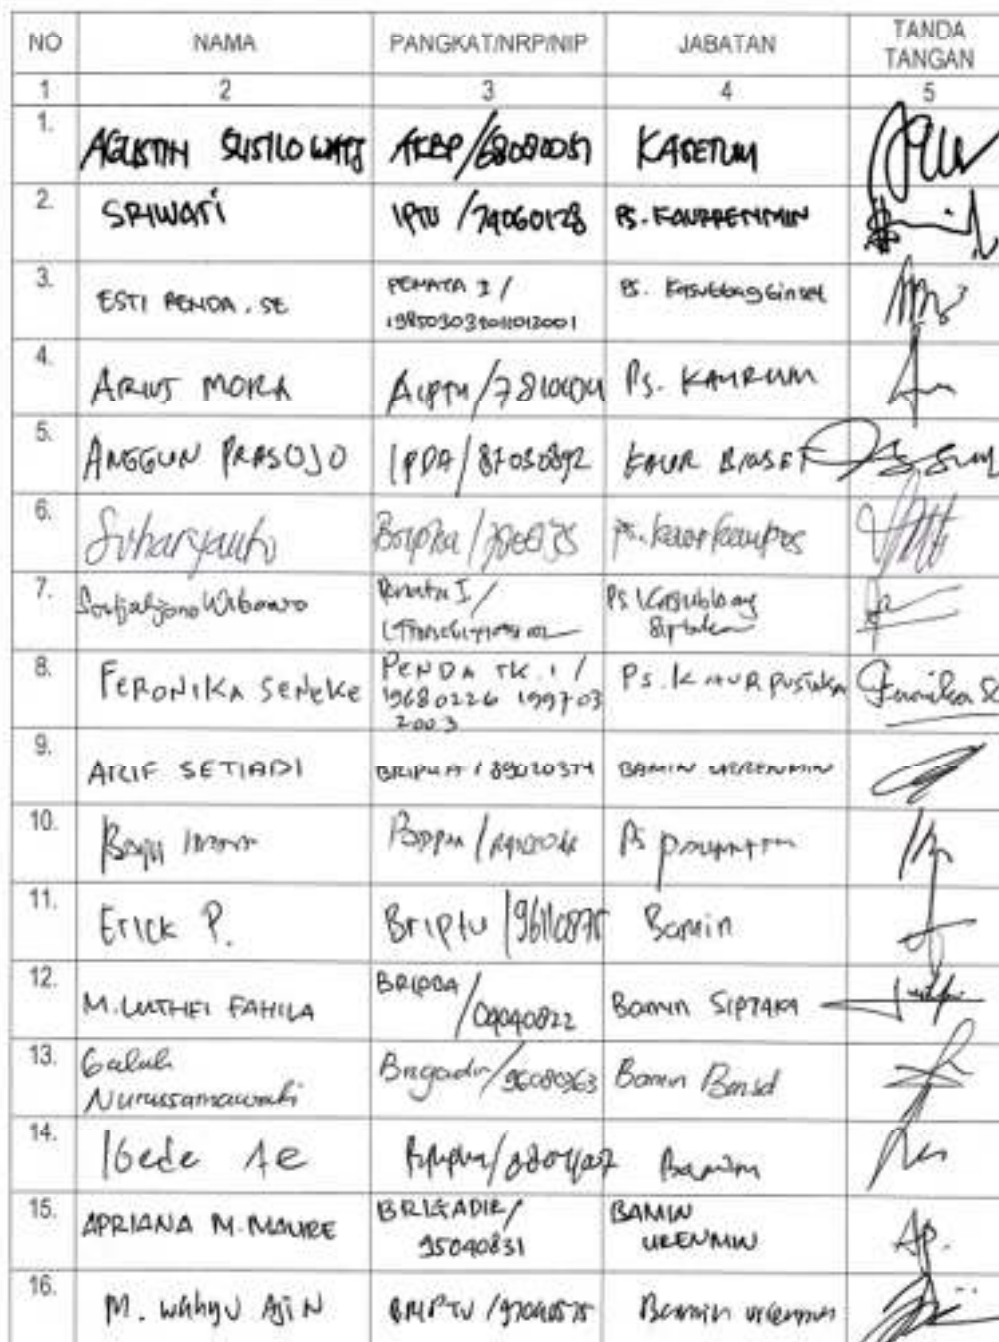 NO NAMA PANGKAT/NRP/NIP JABATAN TANDA TANGAN
1 2 3 4 5
1. AGUSTIN SUSILOWATI AKBP/68080051 KASETUM
2. SRIWATI IPTU /74060128 PS. KAURRENMIN
3. ESTI RENDA. SE PENATA I / 198503032011012001 PS. Kasubbag Binset
4. ARIUS MORA AIPTU / PS. KAURUM
5. ANGGUN PRASOJO IPDA/87030892 KAUR BINSET
6. Suharyanto Bripka / Ps. Kaur
7. Wibowo Penata I / Ps Kasubbag Siptaka
8. FERONIKA SENEKE PENDA TK. 1 / 19680226 199703 2003 PS. KAUR PUSTAKA
9. ARIF SETIADI BRIPKA / 89020374 BAMIN URRENMIN
10. Bayu Imam Bripka / Ps
11. Erick P. Briptu /96110875 Bamin
12. M. LUTHFI FAHILA BRIPDA /00040822 Bamin SIPTAKA
13. Galuh Nurussamawati Brigadir/96080363 Bamin Binset
14. I Gede Bripka/ Bamin
15. APRIANA M. MAURE BRIGADIR/ 95040831 BAMIN URENMIN
16. M. Wahyu Aji N BRIPTU /97040575 Bamin urrenmin